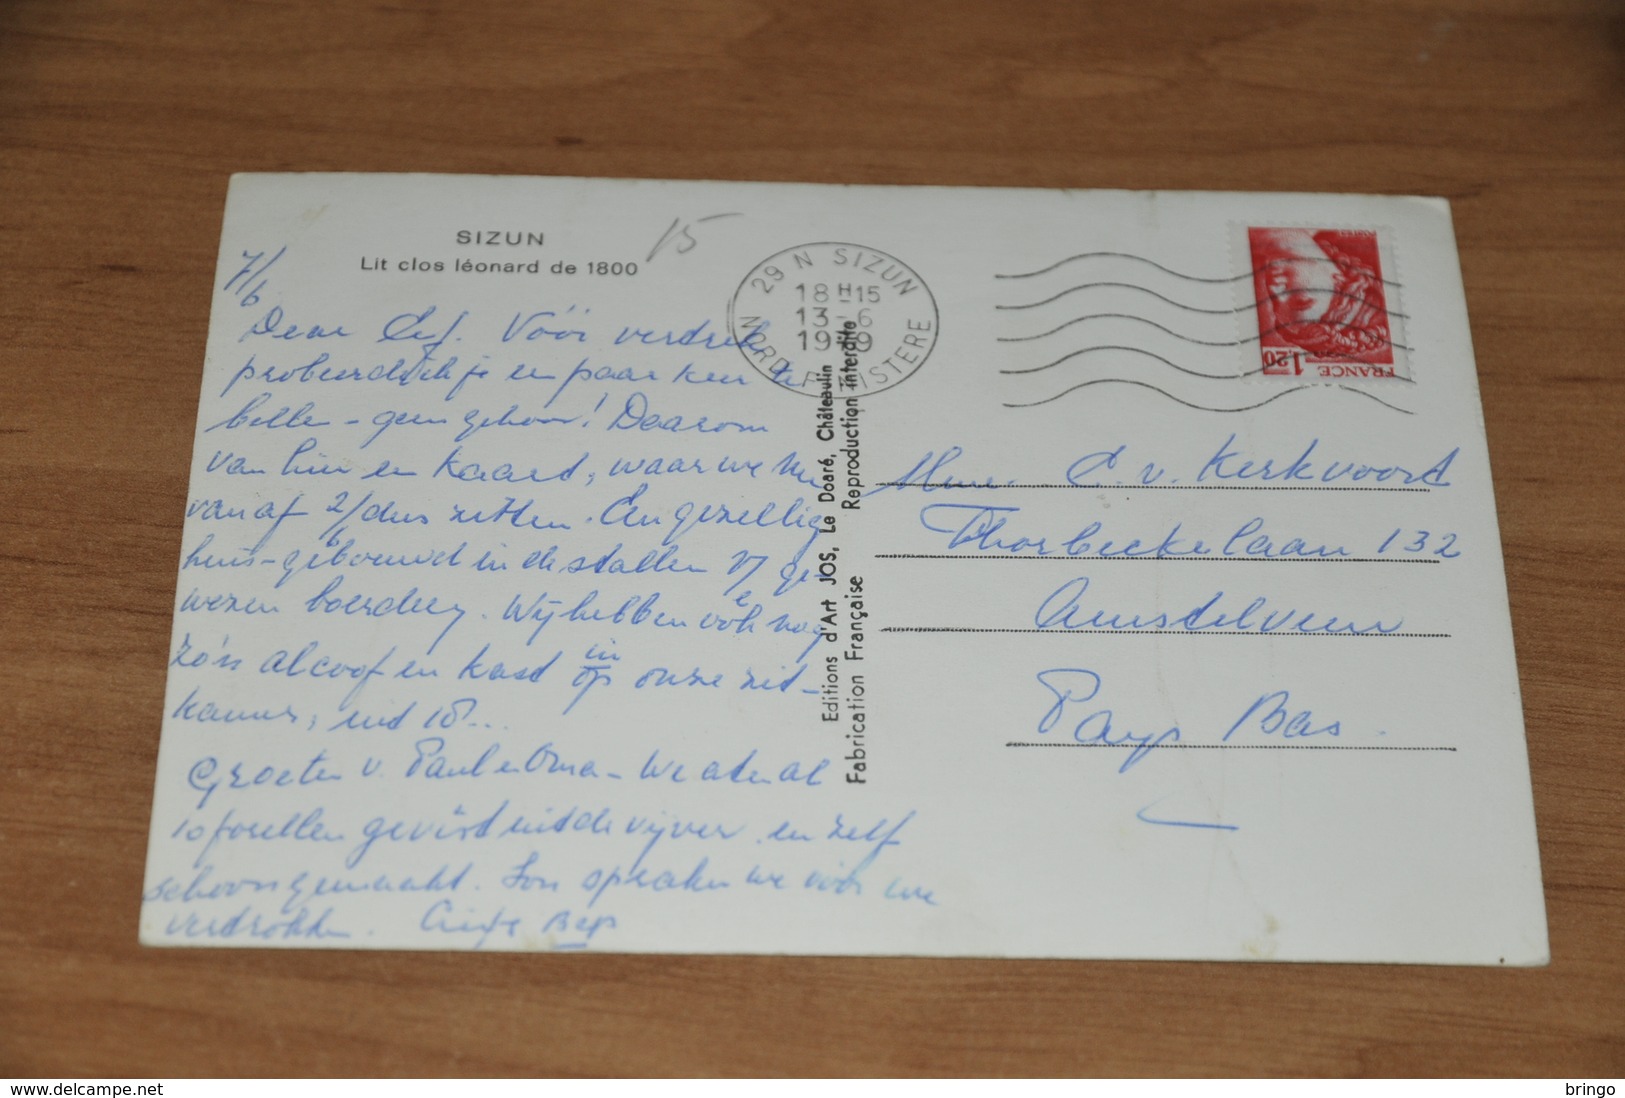 SIZUN
Lit clos léonard de 1800
15
7/6
Dear Vóór vertrek
probeerde ik je een paar keer te
bellen - geen gehoor! Daarom
van hier en kaart, waar we nu
vanaf 2/6 dus zitten. Een gezellig
huis - gebouwd in de stallen v/ ge-
wezen boerderij. Wij hebben ook nog
zo'n alcoof en kast in op onze zit-
kamer, uit 18...
Groeten v. Paul en Oma - We aten al
10 forellen gevist uit de vijver en zelf
schoongemaakt. Jou spraken we vóór ons
vertrokken. Liefs Bep
29 N SIZUN
18H15
13-6
1979
NORD FINISTERE
FRANCE
1,20
Editions d'Art JOS, Le Doaré, Châteaulin
Fabrication Française Reproduction interdite
Mevr. C. v. Kerkvoort
Thorbeckelaan 132
Amstelveen
Pays Bas.
delcampe.net
bringo